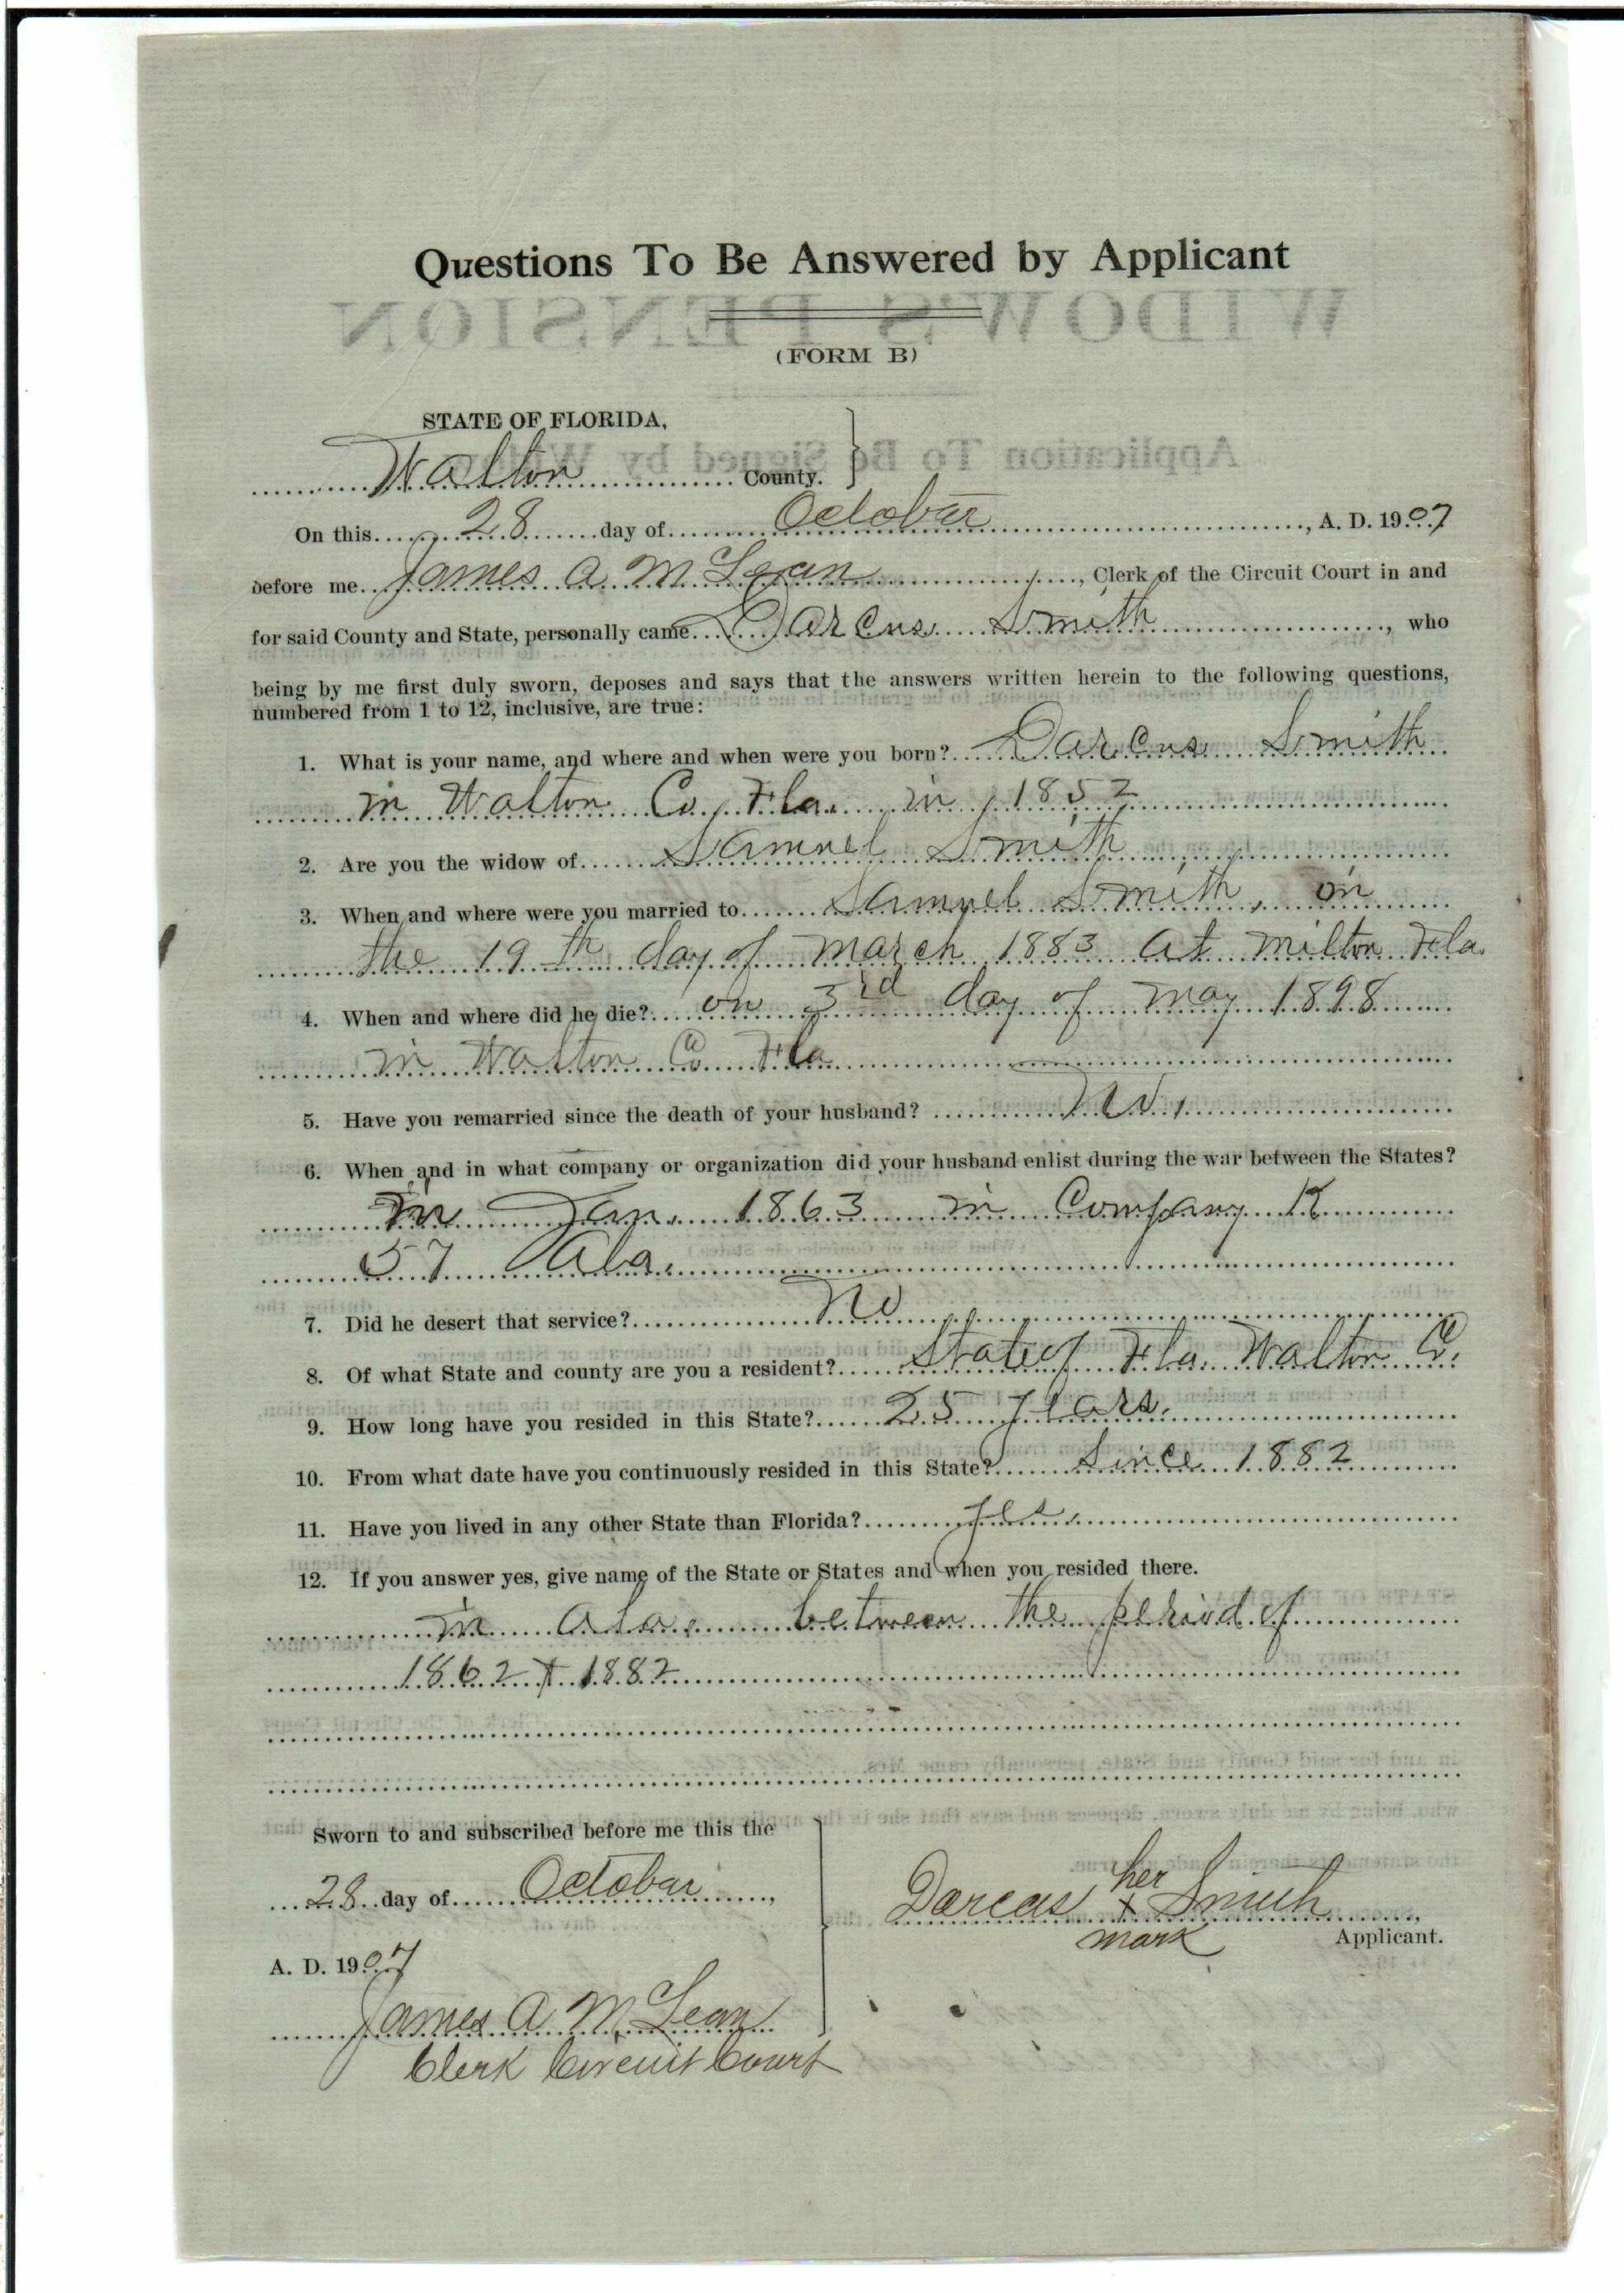 Questions To Be Answered by Applicant
WIDOW'S PENSION
(FORM B)
STATE OF FLORIDA,
Application To Be Signed by
Walton County.
On this 28 day of October, A. D. 1907
before me James A McLean, Clerk of the Circuit Court in and
for said County and State, personally came Darcus Smith, who
being by me first duly sworn, deposes and says that the answers written herein to the following questions,
numbered from 1 to 12, inclusive, are true:
1. What is your name, and where and when were you born? Darcus Smith
in Walton Co, Fla. in 1852
2. Are you the widow of Samuel Smith
3. When and where were you married to Samuel Smith, on
the 19th day of March 1883 at Milton Fla.
4. When and where did he die? on 3rd day of May 1898
in Walton Co Fla
5. Have you remarried since the death of your husband? No.
6. When and in what company or organization did your husband enlist during the war between the States?
In Jan. 1863 in Company K
57 Ala.
7. Did he desert that service? No
8. Of what State and county are you a resident? State of Fla. Walton Co.
9. How long have you resided in this State? 25 years.
10. From what date have you continuously resided in this State? Since 1882
11. Have you lived in any other State than Florida? Yes.
12. If you answer yes, give name of the State or States and when you resided there.
in Ala. between the period of
1862 & 1882
Sworn to and subscribed before me this the
28 day of October,
A. D. 1907
James A McLean
Clerk Circuit Court
her
Darcas x Smith
mark
Applicant.